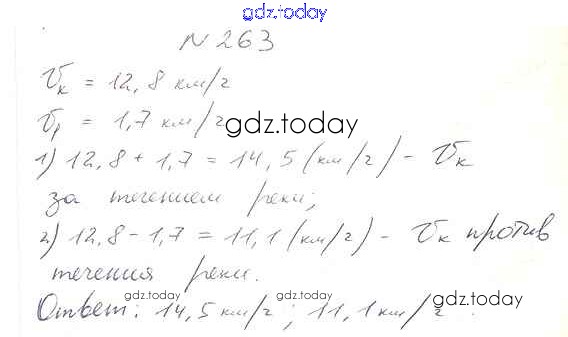 gdz.today
N 263
Vк = 12,8 км/г
Vр = 1,7 км/г
gdz.today
1) 12,8 + 1,7 = 14,5 (км/г) - Vк
за течением реки;
2) 12,8 - 1,7 = 11,1 (км/г) - Vк против
течения реки.
gdz.today gdz.today gdz.today
Ответ: 14,5 км/г; 11,1 км/г.